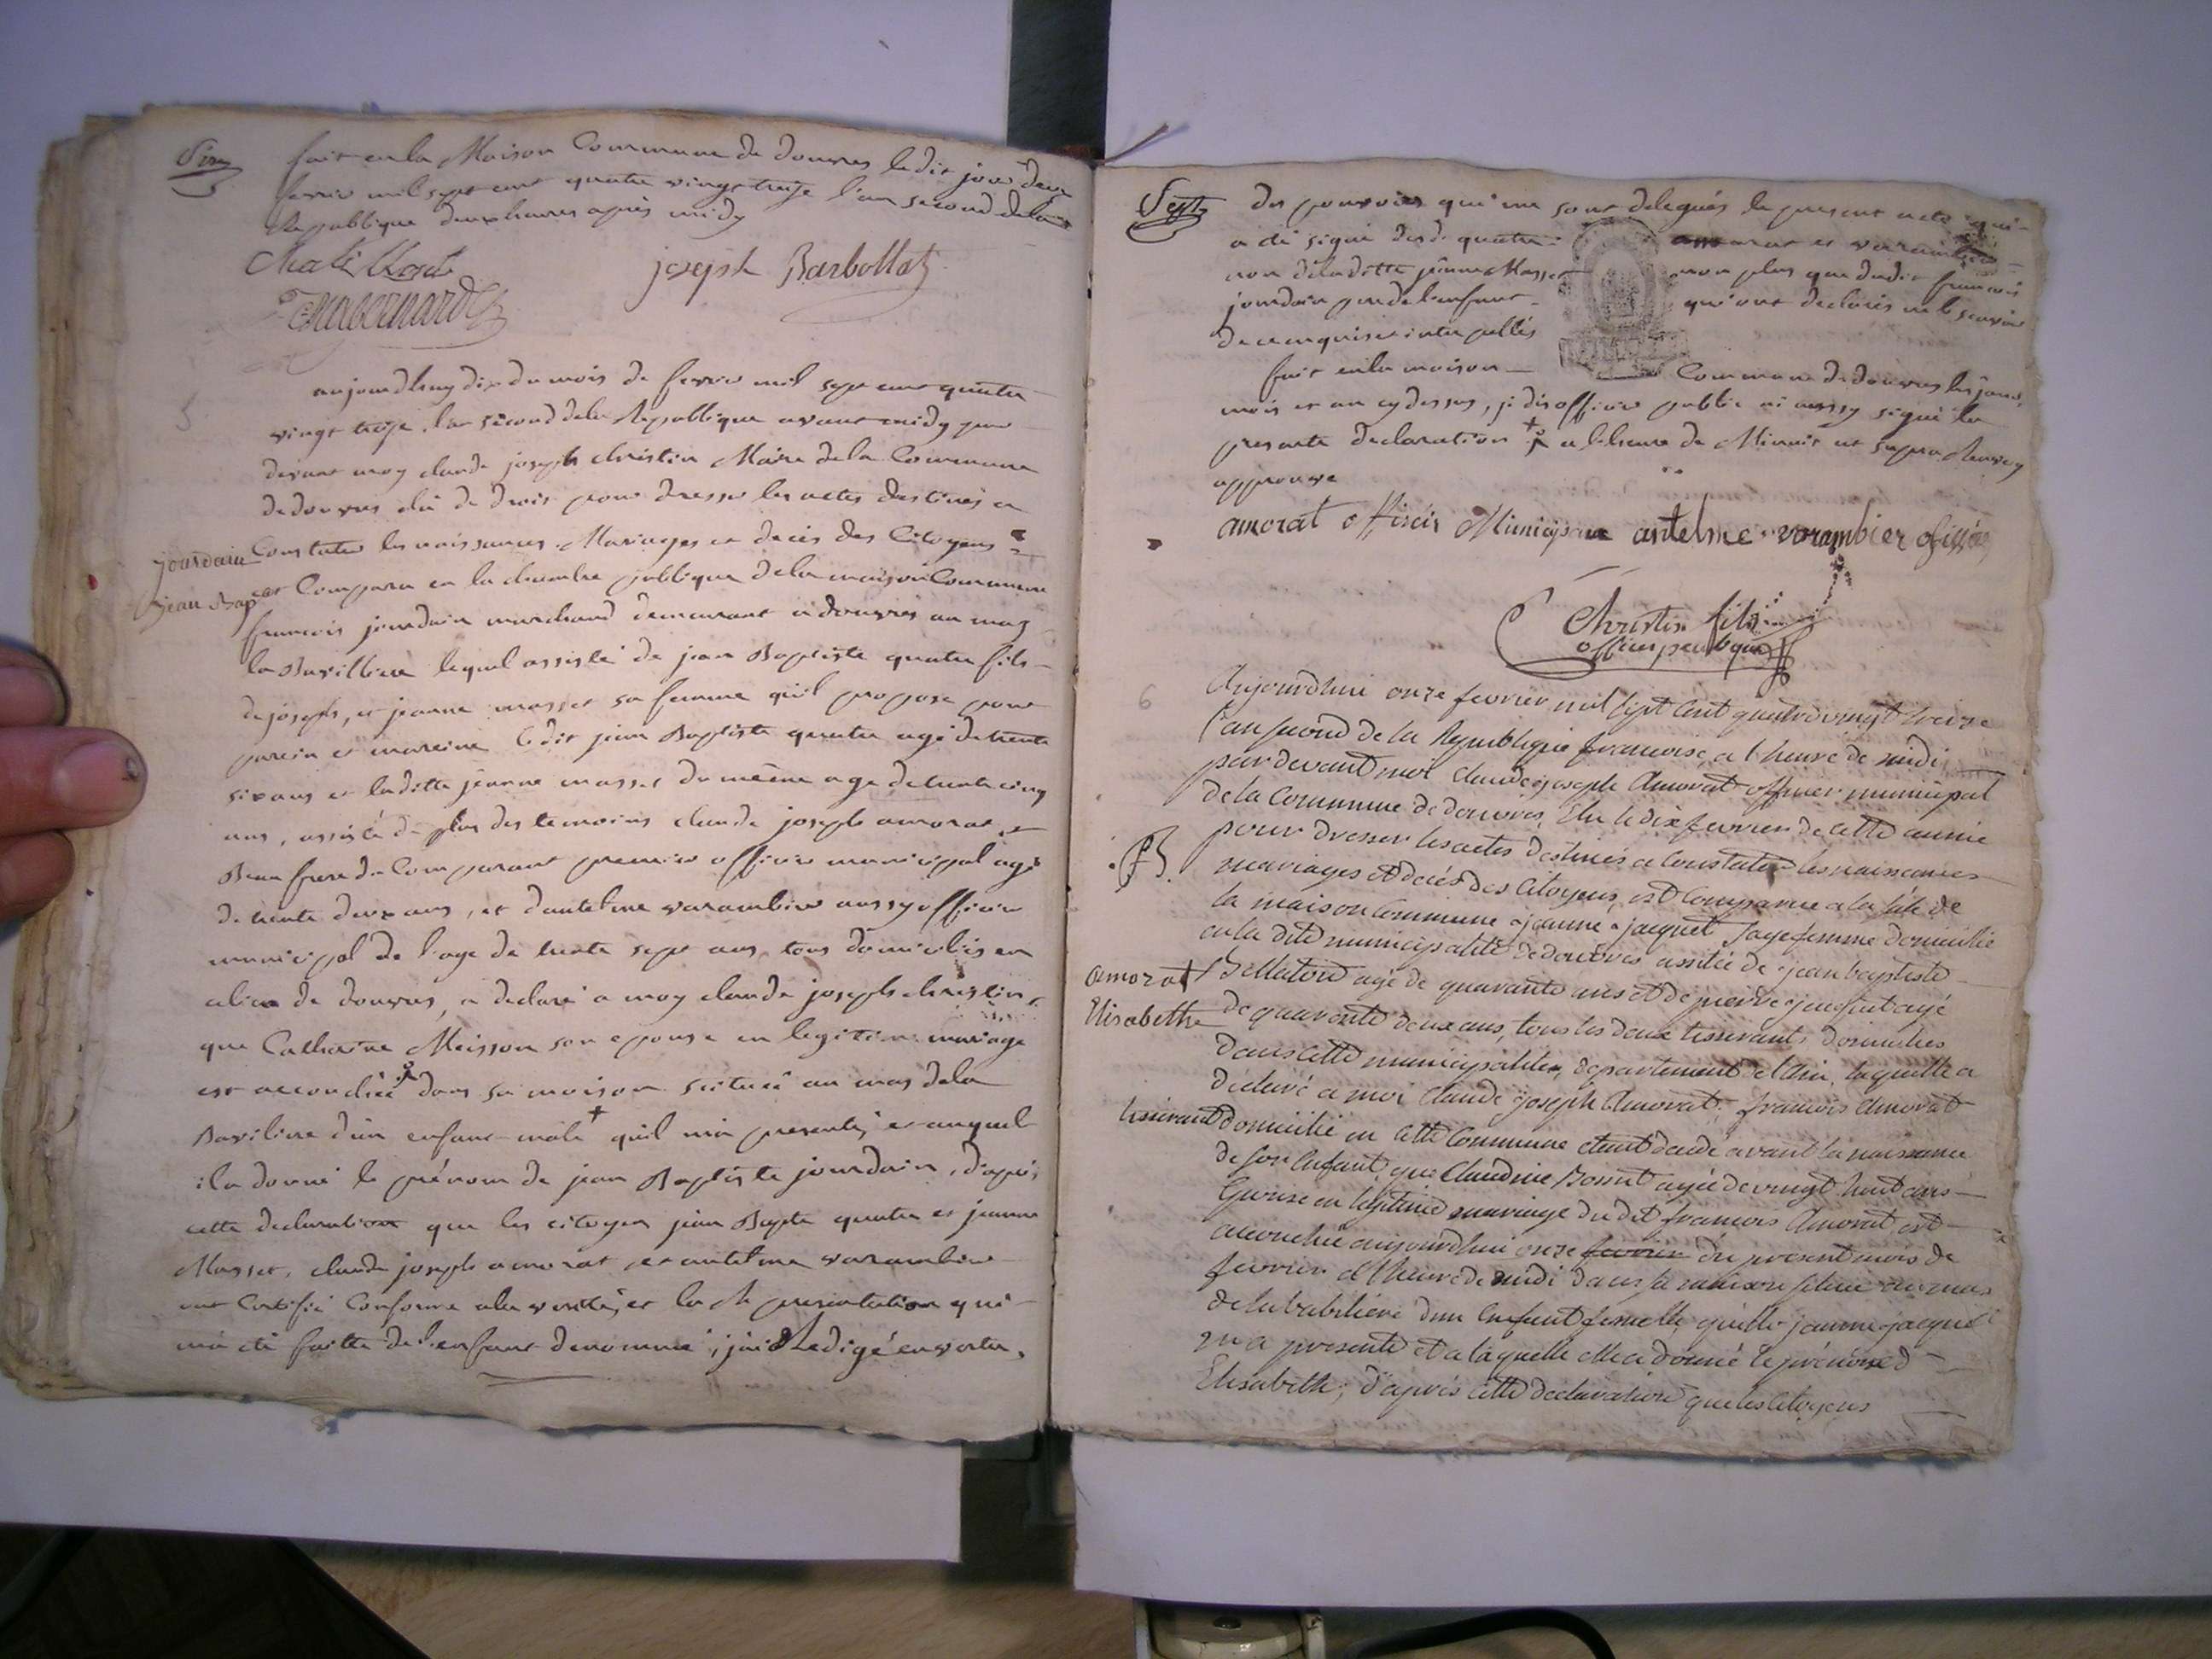 Six
fait en la Maison Commune de douvres ledit jour deux
fevrier mil sept cent quatre vingt treize l'an second de la
Republique deux heures après midy
joseph Barbollat
5
aujourdhuy dix du mois de fevrier mil sept cent quatre
vingt treize l'an second dela Republique avant midy par
devant moy claude joseph christin Maire dela Commune
de douvres élu de droit pour dresser les actes destinés a
jourdain
Constater les naissances Mariages et decès des Citoyens
jean Bapte
est Comparu en la chambre publique dela maison Commune
francois jourdain marchand demeurant a douvres au mas
la Bavilliere lequel assisté de jean Baptiste quatre fils
de joseph, et jeanne masset sa femme qu'il propose pour
parein et mareine ledit jean Baptiste quatre agé de trente
six ans et laditte jeanne masset du même age de trente cinq
ans, assisté de plus des temoins claude joseph amorat
Beau frere du Comparant premier officier municipal agé
de trente deux ans, et d'antelme varambier aussy officier
municipal de l'age de trente sept ans tous domiciliés en
de douvres, a declaré a moy claude joseph christin
que Catherine Moisson son epouse en legitime mariage
est accouchée dans sa maison scituée au mas dela
Baviliere d'un enfant male + quil m'a presenté, et auquel
il a donné le prénom de jean Baptiste jourdain, d'après
cette declaration que les citoyens jean Bapte quatre et jeanne
Masset, claude joseph amorat et antelme varambier
ont Certifié Conforme a la verité, et la presentation qui
m'a été faitte de l'enfant denommé, j'ai Redigé en vertu
Sept
des pouvoirs qui me sont delegués le present acte qui
a été signé desd. quatre amorat et varambier
non dela ditte jeanne Masset non plus que dudit francois
jourdain pere de l'enfant qu'ont declarés ne le scavoir
de ce enquis et interpellés
fait en la maison Commune de douvres les jours,
mois et an cy dessus, je dis officier public ai aussy signé la
presente declaration + a l'heure de Minuit ut supra Renvoy
approuvé
amorat officier Municipal antelme varambier
Christin fils
officier publique
6
Aujourdhui onze fevrier mil sept cent quatre vingt treize
l'an second de la Republique francoise, a l'heure de midi
par devant moi Claude joseph Amorat officier municipal
de la Commune de douvres, Elu le dix fevrier de cette année
pour dresser les actes destinés a Constater les naissances
mariages et decès des Citoyens, est Comparue a la sale de
la maison Commune jeanne jacquet sage femme domiciliée
en la dite municipalité de douvres assistée de jean baptiste
amorat
agé de quarante ans et de pierre agé
Elisabethe
de quarente deux ans, tous les deux tisserants domiciliés
dans cette municipalité, departement de l'Ain, laquelle a
déclaré a moi Claude joseph Amorat, francois Amorat
tisserant
domicilié en cette Commune etant decedé avant la naissance
de son Enfant, que Claudine agée de vingt huit ans
Epouse en legitime mariage du dit francois Amorat est
accouchée aujourdhui onze fevrier du present mois de
fevrier a l'heure de midi dans sa maison située au mas
de la babiliere d'un Enfant femelle, quelle jeanne jacquet
m'a presenté et a laquelle elle a donné le prénom d
Elisabeth; d'après cette declaration que les Citoyens